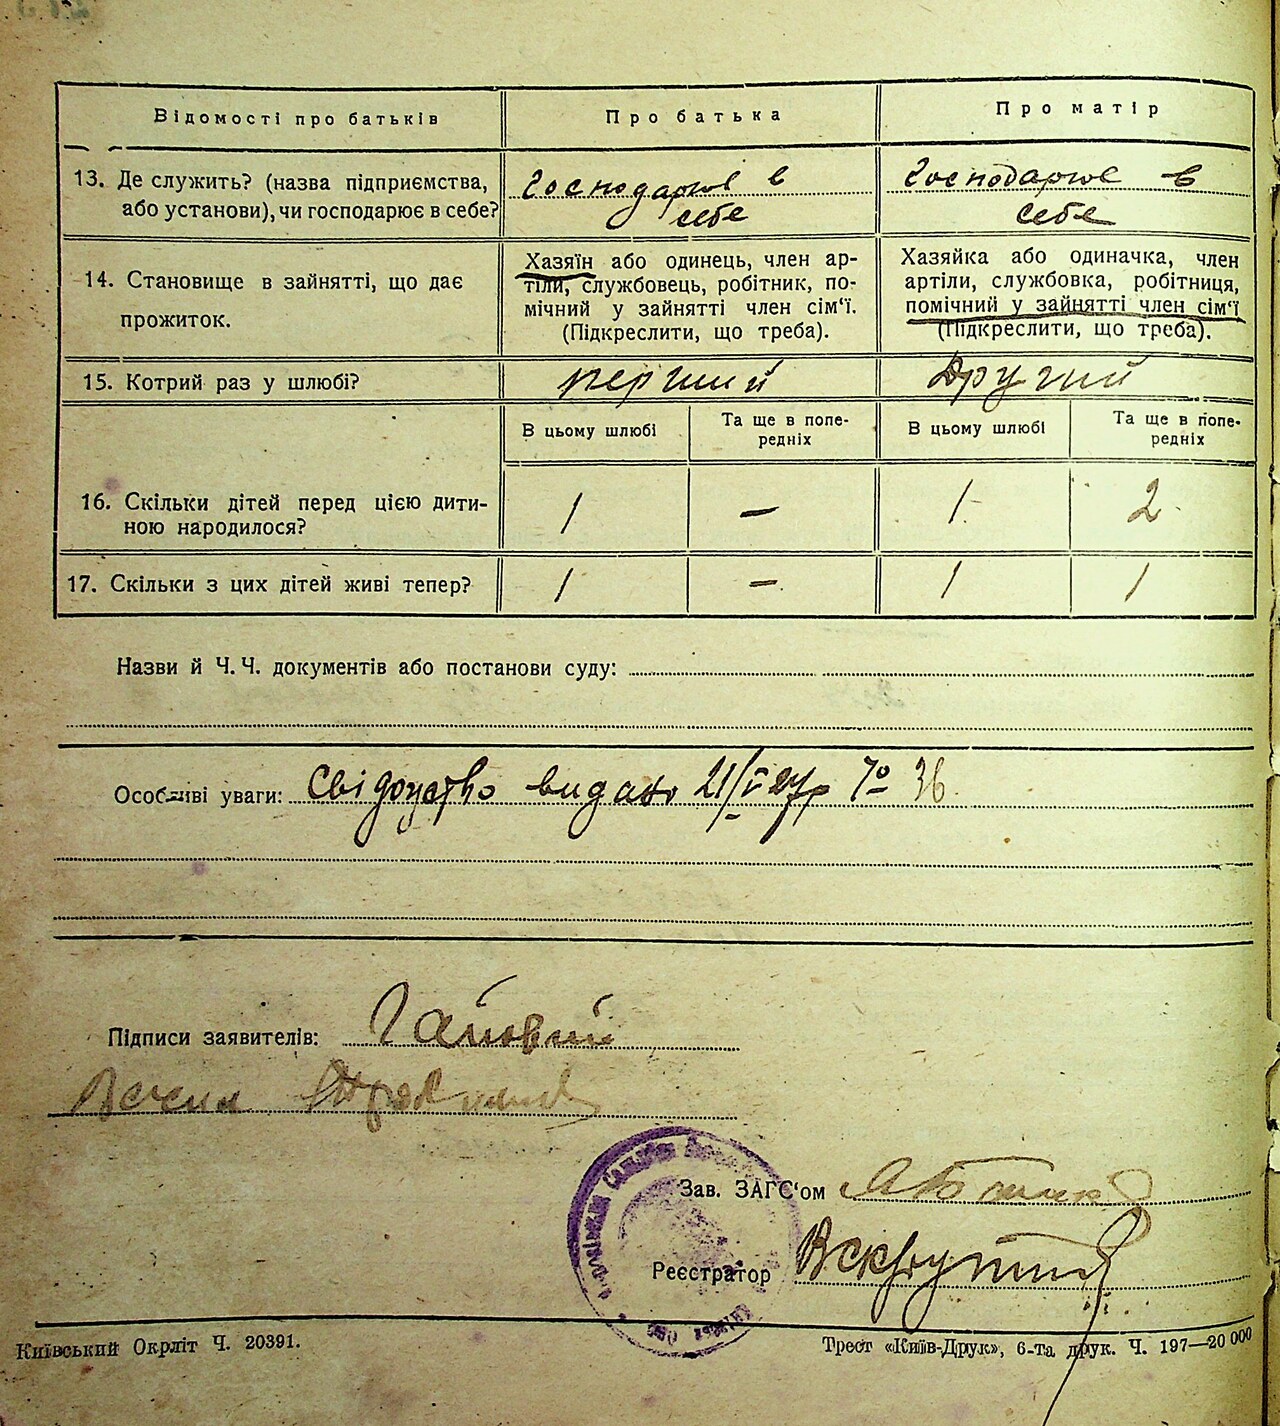 Відомості про батьків
Про батька
Про матір
13. Де служить? (назва підприємства,
або установи), чи господарює в себе?
Господарює в
себе
Господарює в
себе
14. Становище в зайнятті, що дає
прожиток.
Хазяїн або одинець, член ар-
тіли, службовець, робітник, по-
мічний у зайнятті член сім‘ї.
(Підкреслити, що треба).
Хазяйка або одиначка, член
артіли, службовка, робітниця,
помічний у зайнятті член сім‘ї
(Підкреслити, що треба).
15. Котрий раз у шлюбі?
перший
Другий
В цьому шлюбі
Та ще в попе-
редніх
В цьому шлюбі
Та ще в попе-
редніх
16. Скільки дітей перед цією дити-
ною народилося?
1
–
1
2
17. Скільки з цих дітей живі тепер?
1
–
1
1
Назви й Ч. Ч. документів або постанови суду:
Особливі уваги: Свідоцтво видано 21/V 27р № 36
Підписи заявителів: Гайовий
Зав. ЗАГС‘ом
Реєстратор
Київський Окрліт Ч. 20391.
Трест «Київ-Друк», 6-та друк. Ч. 197—20 000